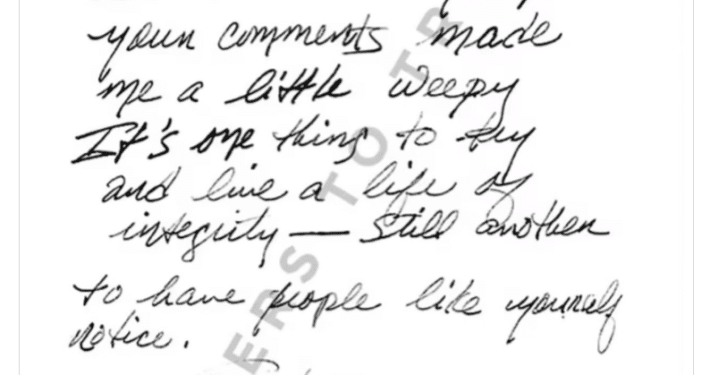 your comments made
me a little weepy
It's one thing to try
and live a life of
integrity — still another
to have people like yourself
notice.
ERS TO TR